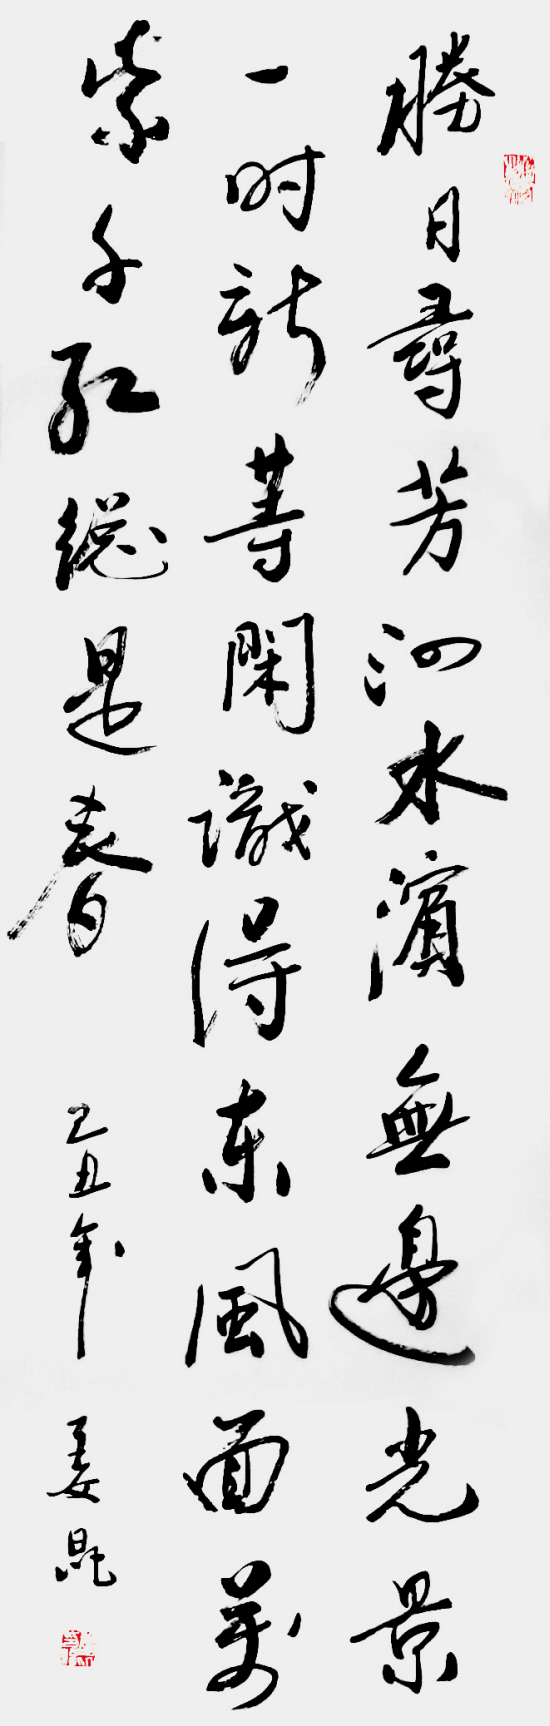 勝日尋芳泗水濱無邊光景
一时新等閑識得东風面萬
紫千红總是春
己丑年
姜昆